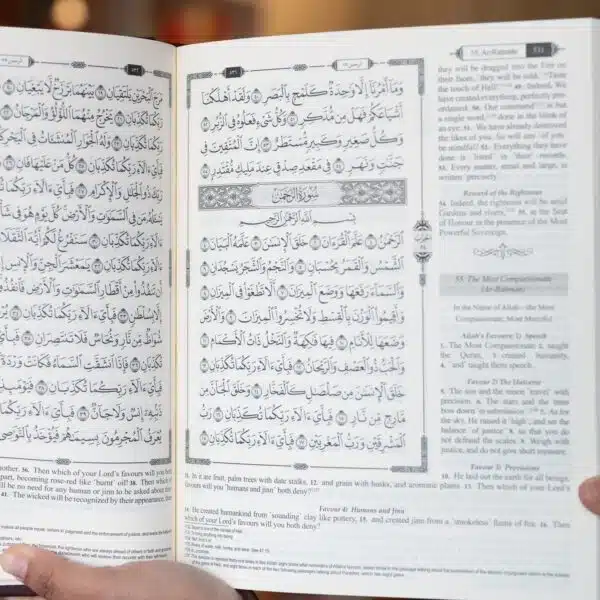 ٥٣١
وَمَآ أَمْرُنَآ إِلَّا وَٰحِدَةٌ كَلَمْحٍۭ بِٱلْبَصَرِ ٥٠ وَلَقَدْ أَهْلَكْنَآ
أَشْيَاعَكُمْ فَهَلْ مِن مُّدَّكِرٍ ٥١ وَكُلُّ شَىْءٍ فَعَلُوهُ فِى ٱلزُّبُرِ ٥٢
وَكُلُّ صَغِيرٍ وَكَبِيرٍ مُّسْتَطَرٌ ٥٣ إِنَّ ٱلْمُتَّقِينَ فِى
جَنَّٰتٍ وَنَهَرٍ ٥٤ فِى مَقْعَدِ صِدْقٍ عِندَ مَلِيكٍ مُّقْتَدِرٍۭ ٥٥
سُورَةُ الرَّحْمٰن
بِسْمِ ٱللَّهِ ٱلرَّحْمَٰنِ ٱلرَّحِيمِ
ٱلرَّحْمَٰنُ ١ عَلَّمَ ٱلْقُرْءَانَ ٢ خَلَقَ ٱلْإِنسَٰنَ ٣ عَلَّمَهُ ٱلْبَيَانَ ٤
ٱلشَّمْسُ وَٱلْقَمَرُ بِحُسْبَانٍ ٥ وَٱلنَّجْمُ وَٱلشَّجَرُ يَسْجُدَانِ ٦
وَٱلسَّمَآءَ رَفَعَهَا وَوَضَعَ ٱلْمِيزَانَ ٧ أَلَّا تَطْغَوْا۟ فِى ٱلْمِيزَانِ ٨
وَأَقِيمُوا۟ ٱلْوَزْنَ بِٱلْقِسْطِ وَلَا تُخْسِرُوا۟ ٱلْمِيزَانَ ٩ وَٱلْأَرْضَ
وَضَعَهَا لِلْأَنَامِ ١٠ فِيهَا فَٰكِهَةٌ وَٱلنَّخْلُ ذَاتُ ٱلْأَكْمَامِ ١١
وَٱلْحَبُّ ذُو ٱلْعَصْفِ وَٱلرَّيْحَانُ ١٢ فَبِأَىِّ ءَالَآءِ رَبِّكُمَا تُكَذِّبَانِ ١٣
خَلَقَ ٱلْإِنسَٰنَ مِن صَلْصَٰلٍ كَٱلْفَخَّارِ ١٤ وَخَلَقَ ٱلْجَآنَّ مِن
مَّارِجٍ مِّن نَّارٍ ١٥ فَبِأَىِّ ءَالَآءِ رَبِّكُمَا تُكَذِّبَانِ ١٦ رَبُّ
ٱلْمَشْرِقَيْنِ وَرَبُّ ٱلْمَغْرِبَيْنِ ١٧ فَبِأَىِّ ءَالَآءِ رَبِّكُمَا تُكَذِّبَانِ ١٨
55. Ar-Raḥmân 531
they will be dragged into the Fire on
their faces, they will be told, "Taste
the touch of Hell!" 49. Indeed, We
have created everything, perfectly pre-
ordained. 50. Our command is but
a single word, done in the blink of
an eye. 51. We have already destroyed
the likes of you. So will any of you
be mindful? 52. Everything they have
done is listed in their records.
53. Every matter, small and large, is
written precisely.
Reward of the Righteous
54. Indeed, the righteous will be amid
Gardens and rivers, 55. at the Seat
of Honour in the presence of the Most
Powerful Sovereign.
55. The Most Compassionate
(Ar-Raḥmân)
In the Name of Allah—the Most
Compassionate, Most Merciful
Allah's Favours: 1) Speech
1. The Most Compassionate 2. taught
the Quran, 3. created humanity,
4. and taught them speech.
Favour 2) The Universe
5. The sun and the moon travel with
precision. 6. The stars and the trees
bow down in submission. 7. As for
the sky, He raised it high, and set the
balance of justice 8. so that you do
not defraud the scales. 9. Weigh with
justice, and do not give short measure.
Favour 3) Provisions
10. He laid out the earth for all beings.
11. In it are fruit, palm trees with date stalks, 12. and grain with husks, and aromatic plants. 13. Then which of your Lord's
favours will you humans and jinn both deny?
Favour 4) Humans and Jinn
14. He created humankind from sounding clay like pottery, 15. and created jinn from a smokeless flame of fire. 16. Then
which of your Lord's favours will you both deny?
٥٣٢
مَرَجَ ٱلْبَحْرَيْنِ يَلْتَقِيَانِ ١٩ بَيْنَهُمَا بَرْزَخٌ لَّا يَبْغِيَانِ ٢٠
رَبِّكُمَا تُكَذِّبَانِ ٢١ يَخْرُجُ مِنْهُمَا ٱللُّؤْلُؤُ وَٱلْمَرْجَانُ ٢٢
رَبِّكُمَا تُكَذِّبَانِ ٢٣ وَلَهُ ٱلْجَوَارِ ٱلْمُنشَـَٔاتُ فِى ٱلْبَحْرِ
رَبِّكُمَا تُكَذِّبَانِ ٢٥ كُلُّ مَنْ عَلَيْهَا فَانٍ ٢٦
رَبِّكَ ذُو ٱلْجَلَٰلِ وَٱلْإِكْرَامِ ٢٧ فَبِأَىِّ ءَالَآءِ رَبِّكُمَا
يَسْـَٔلُهُۥ مَن فِى ٱلسَّمَٰوَٰتِ وَٱلْأَرْضِ كُلَّ يَوْمٍ هُوَ فِى شَأْنٍ
ءَالَآءِ رَبِّكُمَا تُكَذِّبَانِ ٣٠ سَنَفْرُغُ لَكُمْ أَيُّهَ ٱلثَّقَلَانِ
ءَالَآءِ رَبِّكُمَا تُكَذِّبَانِ ٣٢ يَٰمَعْشَرَ ٱلْجِنِّ وَٱلْإِنسِ إِنِ
أَن تَنفُذُوا۟ مِنْ أَقْطَارِ ٱلسَّمَٰوَٰتِ وَٱلْأَرْضِ فَٱنفُذُوا۟
إِلَّا بِسُلْطَٰنٍ ٣٣ فَبِأَىِّ ءَالَآءِ رَبِّكُمَا تُكَذِّبَانِ ٣٤
شُوَاظٌ مِّن نَّارٍ وَنُحَاسٌ فَلَا تَنتَصِرَانِ ٣٥ فَبِأَىِّ
تُكَذِّبَانِ ٣٦ فَإِذَا ٱنشَقَّتِ ٱلسَّمَآءُ فَكَانَتْ وَرْدَةً
فَبِأَىِّ ءَالَآءِ رَبِّكُمَا تُكَذِّبَانِ ٣٨ فَيَوْمَئِذٍ
ذَنۢبِهِۦٓ إِنسٌ وَلَا جَآنٌّ ٣٩ فَبِأَىِّ ءَالَآءِ رَبِّكُمَا
يُعْرَفُ ٱلْمُجْرِمُونَ بِسِيمَٰهُمْ فَيُؤْخَذُ بِٱلنَّوَٰصِى
other. 36. Then which of your Lord's favours will you both
apart, becoming rose-red like burnt oil! 38. Then which of
will be no need for any human or jinn to be asked about their
41. The wicked will be recognized by their appearance, then